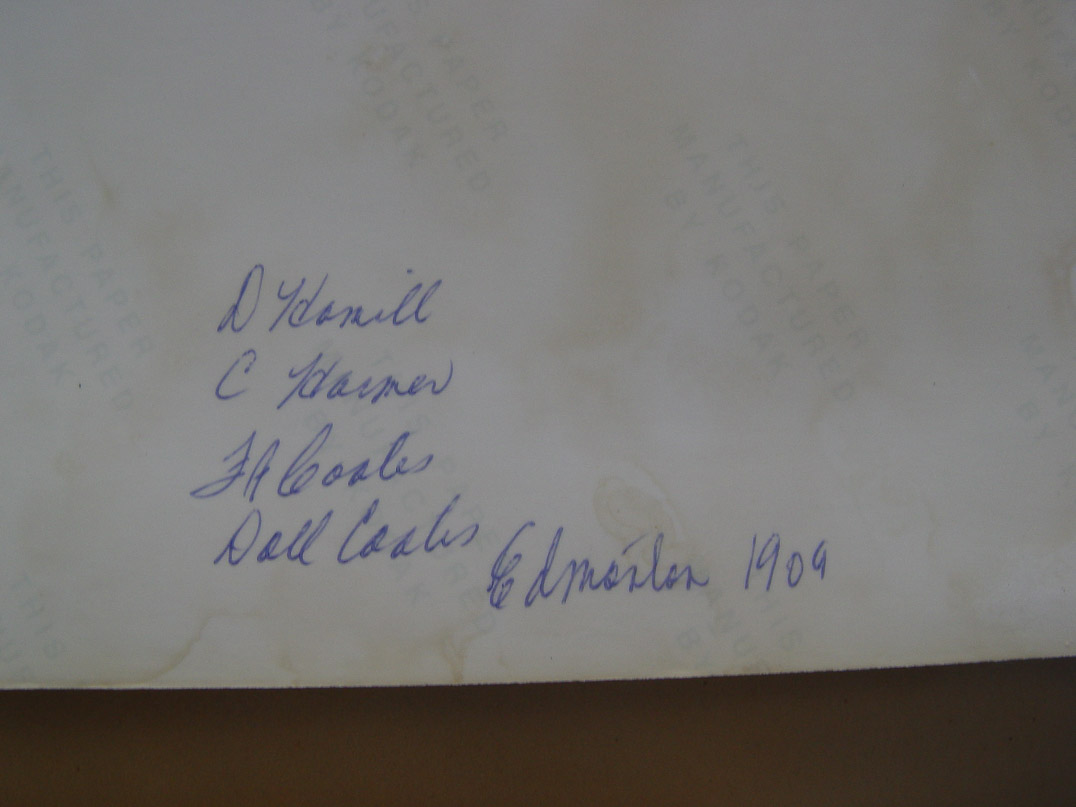 THIS PAPER
MANUFACTURED
BY KODAK
THIS PAPER
MANUFACTURED
BY KODAK
THIS PAPER
MANUFACTURED
KODAK
D Hamill
C Harmer
FA Coales
Doll Coales
Edmonton 1909